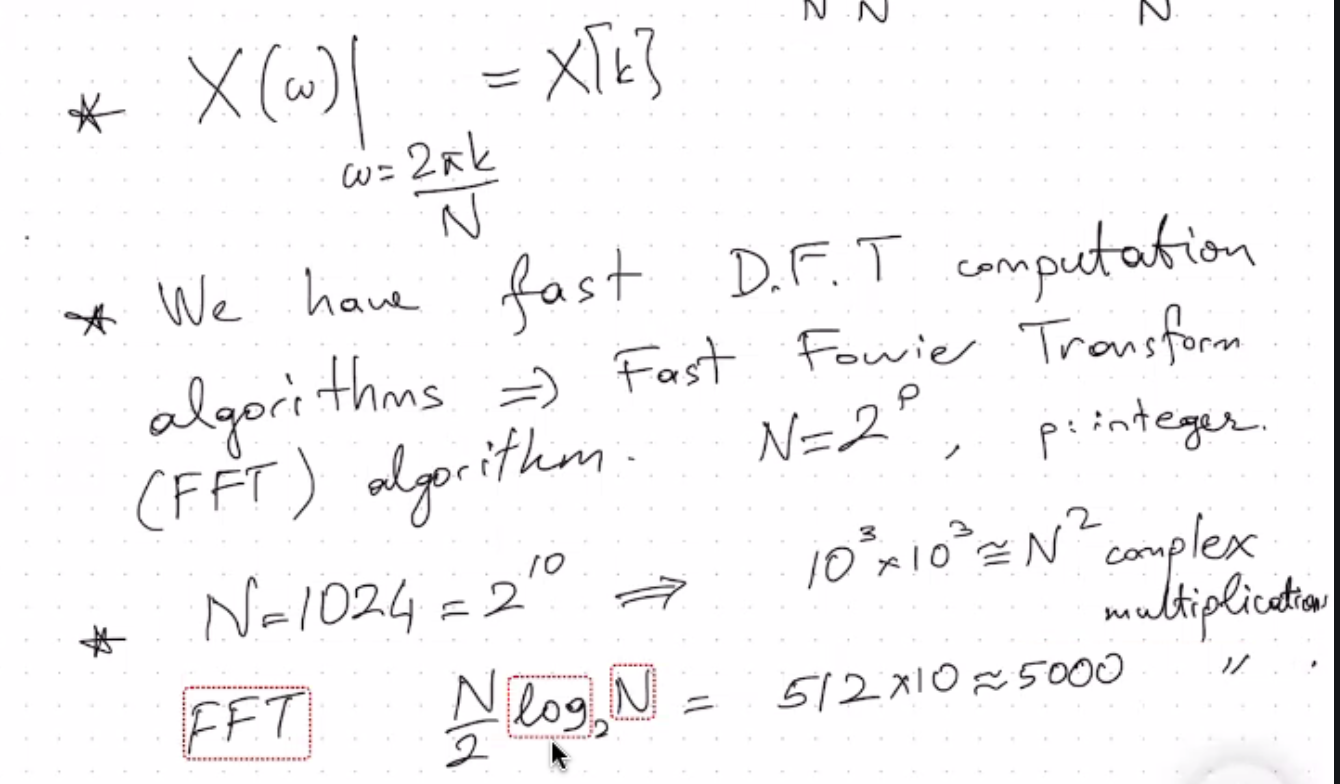 N N N
* X(ω)| = X[k]
ω = 2πk/N
* We have fast D.F.T computation
algorithms ⇒ Fast Fourier Transform
(FFT) algorithm. N=2^p , p: integer.
* N=1024=2^10 ⇒ 10^3×10^3≅N^2 complex
multiplications
FFT N/2 log_2 N = 512×10≈5000 〃 .